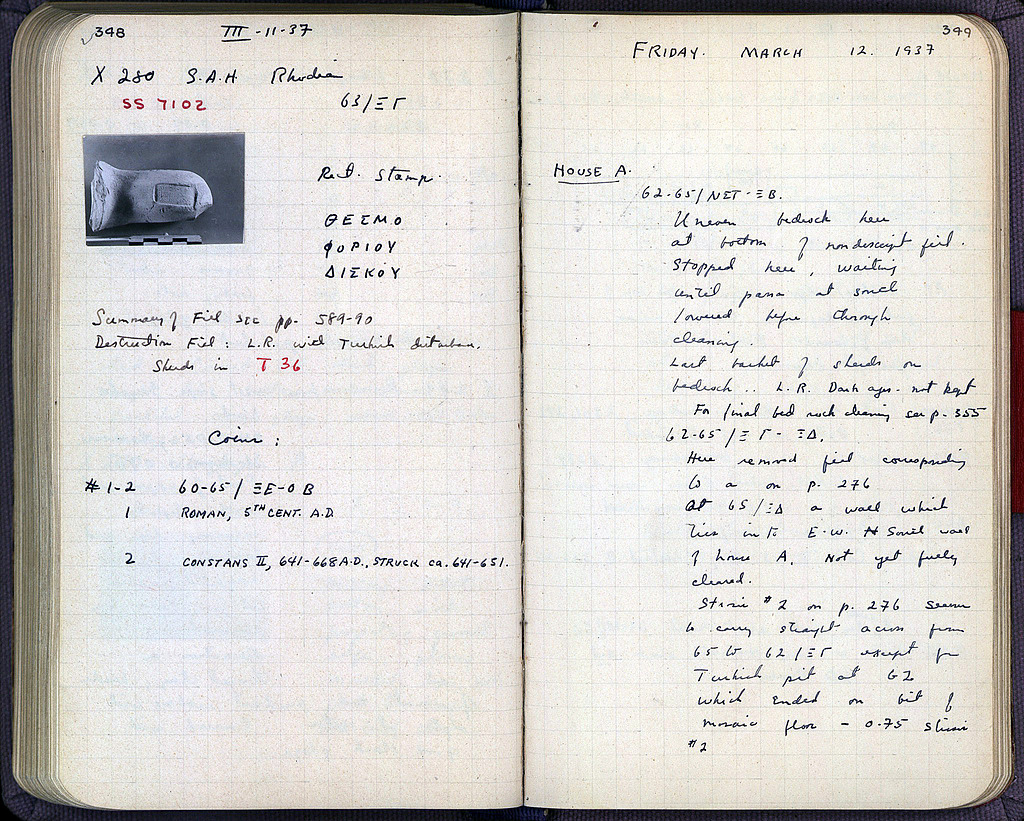 348 III-11-37
X 280 S.A.H. Rhodian
SS 7102 63/ΞΓ
Rect. Stamp.
ΘΕΣΜΟ
ΦΟΡΙΟΥ
ΔΙΣΚΟΥ
Summary of Fill see pp. 589-90
Destruction Fill: L.R. with Turkish disturban.
Sherds in T 36
Coins:
# 1-2 60-65/ΞΕ-ΟΒ
1 ROMAN, 5TH CENT. A.D.
2 CONSTANS II, 641-668 A.D., STRUCK ca. 641-651.
349
FRIDAY. MARCH 12. 1937
HOUSE A.
62-65/ΞB.
Uneven bedrock here
at bottom of nondescript fill.
Stopped here, waiting
until at south
lowered before through
cleaning.
Last basket of sherds on
bedrock .. L.R. Dark ages - not kept
For final bed rock cleaning see p. 355
62-65/ΞΓ-ΞΔ.
Here removed fill corresponding
to a on p. 276
At 65/ΞΔ a wall which
ties in to E-W. South wall
of house A. Not yet fully
cleared.
#2 on p. 276 seems
to carry straight across from
65 to 62/ΞΓ except for
Turkish pit at 62
which ended on bit of
mosaic floor - 0.75
#2